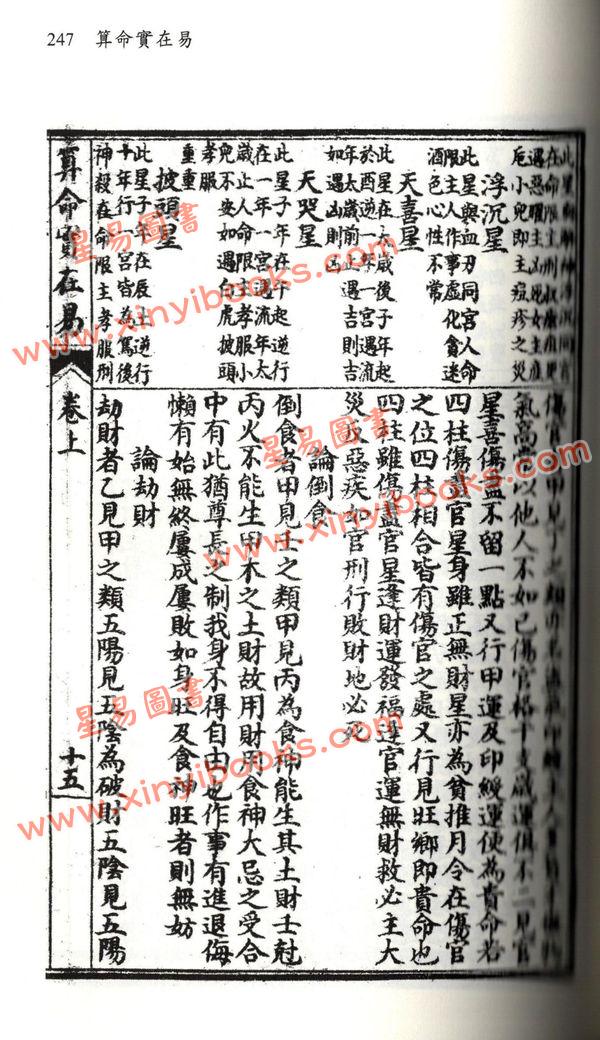 247 算命實在易
浮沉星
此星與血刃同宮人命
限主人作事虛化貪迷
酒色心性不常
天喜星
此星在六歲後子年起
於酉逆一年一宮遇流
年太歲前一止遇吉則吉
如遇凶則凶
天哭星
此星子年在午起逆行
在一年一宮遇流年太
歲止人命限主孝服小
兒不安如遇白虎披頭
孝服
重重
披頭星
此星子年在辰上逆行
十年行一宮皆為駕後
神殺在命限主孝服刑
星喜傷盡不留一點又行甲運及印綬運便為貴命若
四柱傷盡官星身雖正無財星亦為貧推月令在傷官
之位四柱相合皆有傷官之處又行見旺鄉即貴命也
四柱雖傷盡官星逢財運發福逢官運無財救必主大
災或惡疾如官刑行敗財地必死
論倒食
倒食者甲見壬之類甲見丙為食神能生其土財壬尅
丙火不能生甲木之土財故用財用食神大忌之受合
中有此猶尊長之制我身不得自由也作事有進退侮
懶有始無終屢成屢敗如身旺及食神旺者則無妨
論劫財
劫財者乙見甲之類五陽見五陰為破財五陰見五陽
算命實在易
卷上
十五
星易圖書
www.xinyibooks.com
星易圖書
www.xinyibooks.com
星易圖書
www.xinyibooks.com
星易圖書
www.xinyibooks.com